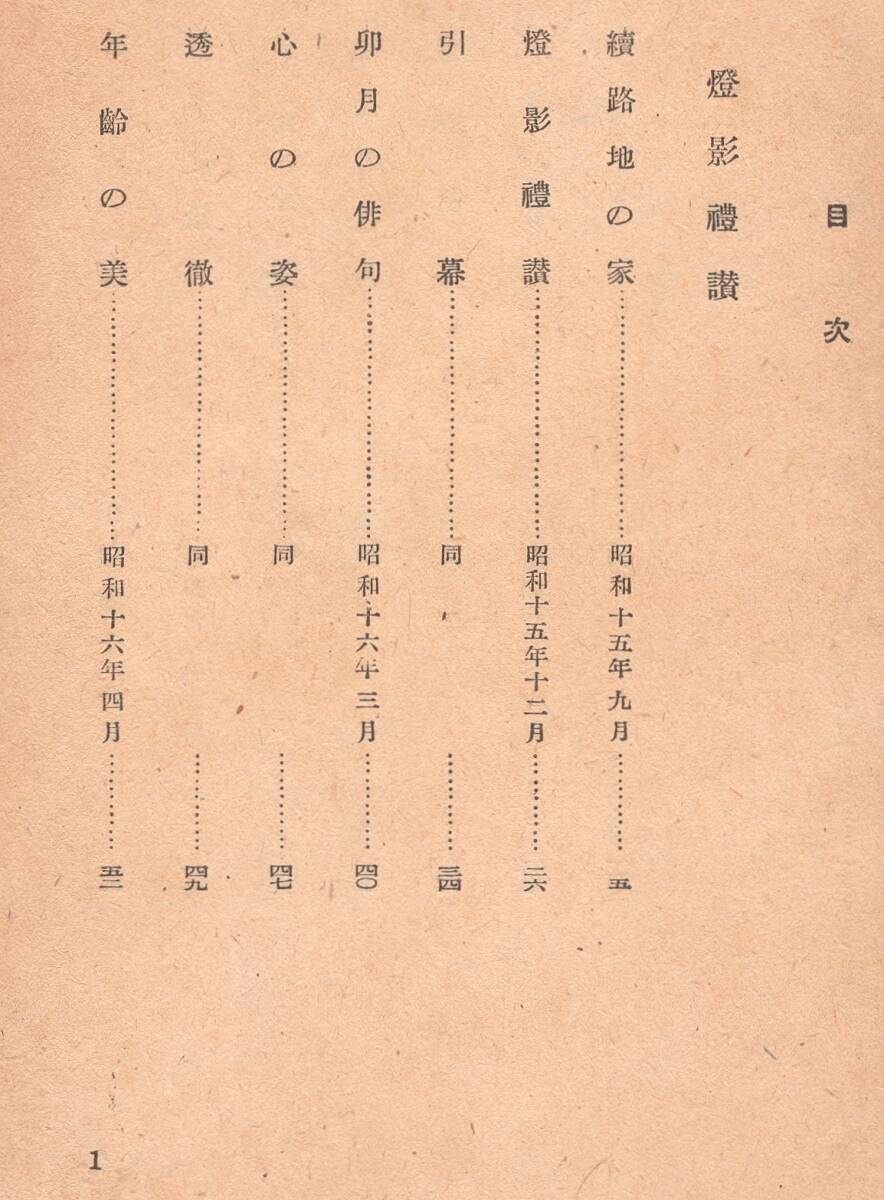 目次
燈影禮讃
續路地の家……………………昭和十五年九月…………五
燈影禮讃……………………昭和十五年十二月…………二六
引幕……………………同…………三四
卯月の俳句……………………昭和十六年三月…………四〇
心の姿……………………同…………四七
透徹……………………同…………四九
年齡の美……………………昭和十六年四月…………五二
1